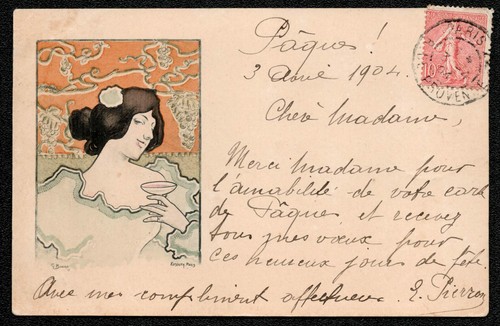 Pâques !
3 Avril 1904.
PARIS
Chère Madame,
Merci Madame pour
l'amabilité de votre carte
de Pâques et recevez
tous mes vœux pour
ces heureux jours de fête.
Avec mes compliment affectueux. E. Pierron